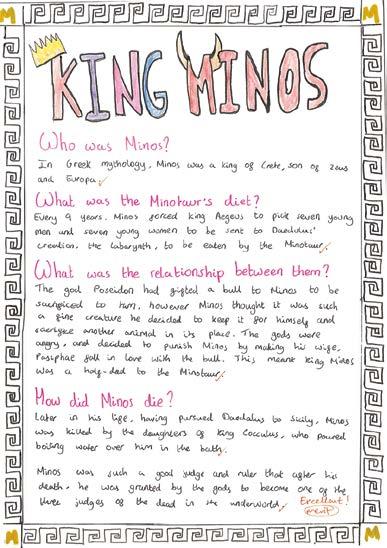 M M
KING MINOS
Who was Minos?
In Greek mythology, Minos was a king of Crete, son of Zeus
and Europa.
What was the Minotaur's diet?
Every 9 years, Minos forced king Aegeus to pick seven young
men and seven young women to be sent to Daedalus'
creation, the labarynth, to be eaten by the Minotaur.
What was the relationship between them?
The god Poseidon had gifted a bull to Minos to be
sacrificed to him, however Minos thought it was such
a fine creature he decided to keep it for himself and
sacrifice another animal in its place. The gods were
angry, and decided to punish Minos by making his wife,
Pasiphae fall in love with the bull. This meant King Minos
was a half-dad to the Minotaur.
How did Minos die?
Later in his life, having pursued Daedalus to Sicily, Minos
was killed by the daughters of King Cocculus, who poured
boiling water over him in the bath.
Minos was such a good judge and ruler that after his
death, he was granted by the gods to become one of the
three judges of the dead in the underworld.
Excellent!
merit
M M